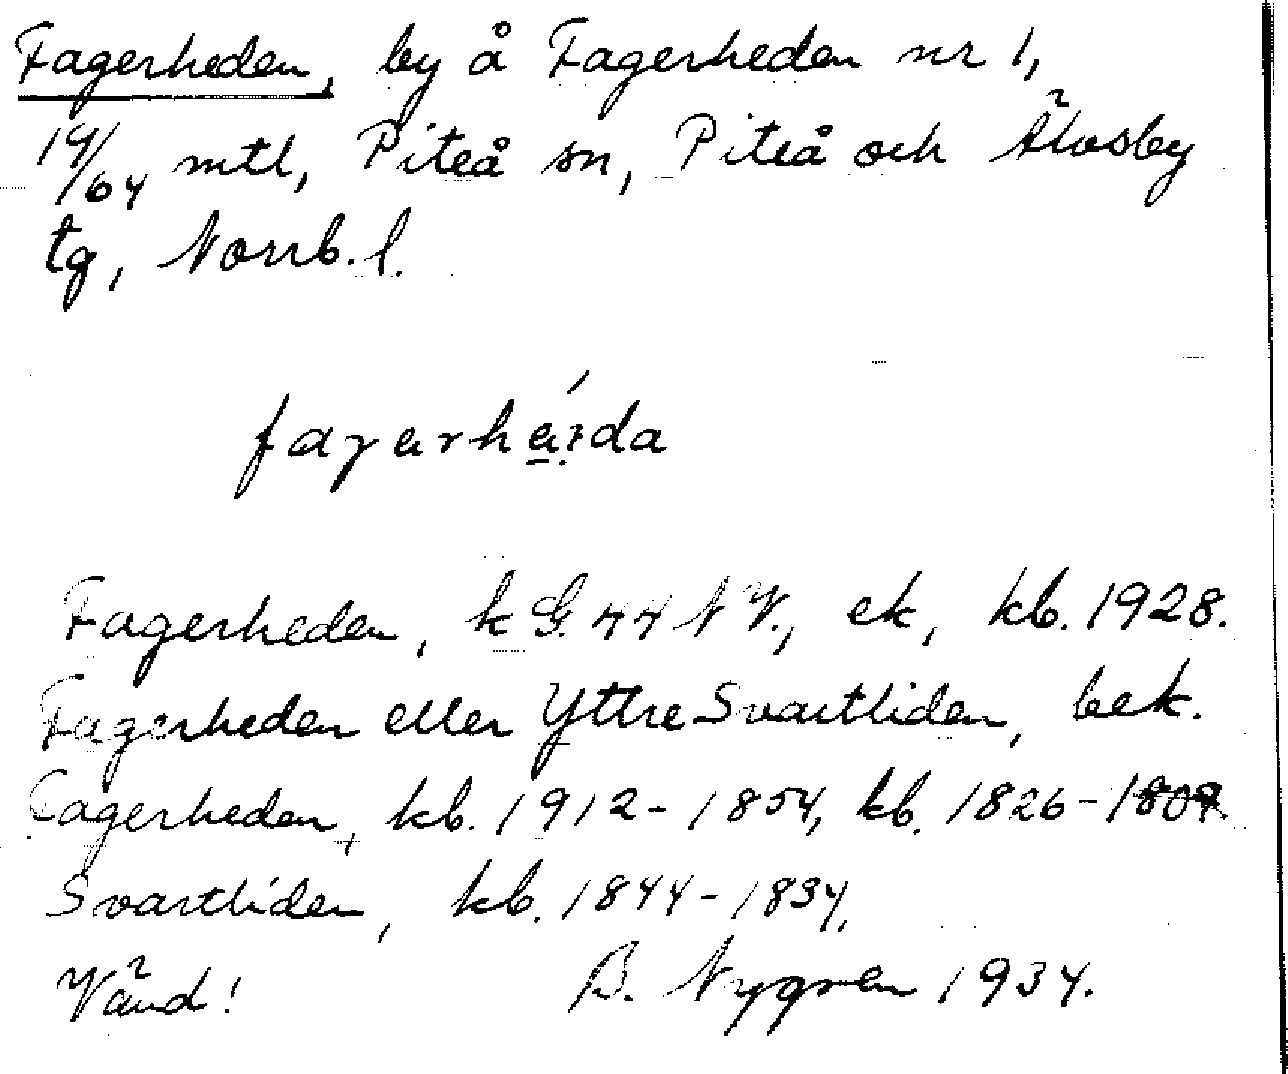 Fagerheden, by å Fagerheden nr 1,
19/64 mtl, Piteå sn, Piteå och Älvsby
tg, Norrb. l.
Fagerheden, k G. 44 NV., ek, kb. 1928.
Fagerheden eller Yttre Svartliden, bek.
Fagerheden, kb. 1912-1854, kb. 1826-1809
Svartliden, kb. 1844-1834.
Vänd! B. Nygren 1934.